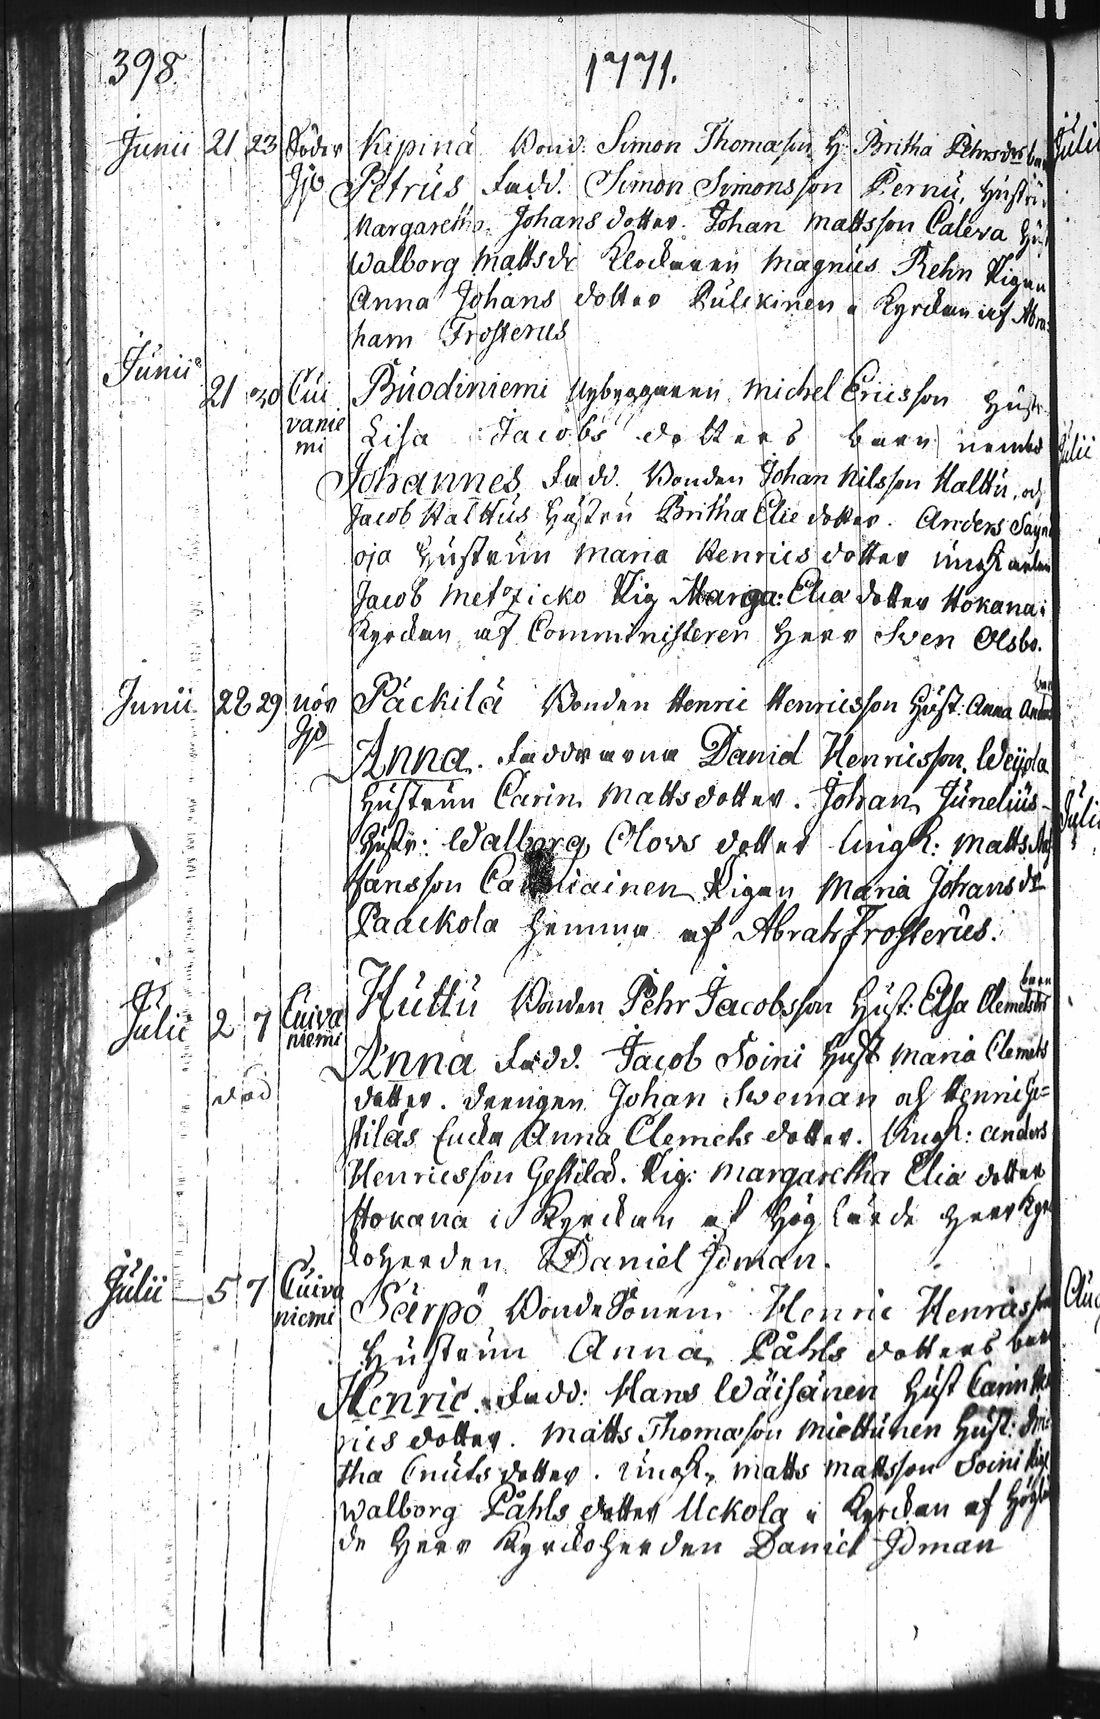 398. 1771.
Junii 21 23 Söder Kipinä Bond: Simon Thomasson H. Britha Pehrsdrs barn
Ijo Petrus Fadd. Simon Simonsson Pernu, Hustru
Margaretha Johans dotter. Johan Mattsson Caleva Hust
Walborg Mattsdr Klockaren Magnus Rehn Pigan
Anna Johans dotter Pulckinen i Kyrckan af Abra-
ham Frosterus
Junii 21 30 Cui Buodiniemi Nybyggaren Michel Ericsson Hustr
vanie Lisa Jacobs dotters barn nembd
mi Johannes Fadd. Bonden Johan Nilsson Halttu, och
Jacob Halttus Hustru Britha Elie dotter. Anders
oja Hustrun Maria Henrics dotter ungkarlen
Jacob Metzicko Pig Marga: Elia dotter Hokana i
Kyrckan af Comministeren Herr Sven Olsbo.
Junii 22 29 nör Päckilä Bonden Henric Henricsson Hust: Anna barn
Ijo Anna. Faddrarna Daniel Henricsson Weijola
Hustrun Carin Mattsdotter. Johan Junelius
Hustr: Walborg Olovs dotter Ungk: Matts
fansson Pigan Maria Johansdr
Paackola hemma af Abrah Frosterus.
Julii 2 7 Cuiva Huttu Bonden Pehr Jacobsson Hust: Elsa Clemetsdrs barn
niemi Anna Fadd. Jacob Soini Hust Maria Clemets
död dotter. Drengen Johan Sveman och Henric Ge=
stiläs Encka Anna Clemets dotter. Ungk: Anders
Henricsson Gestilä. Pig: Margaretha Elia dotter
Hokana i Kyrckan af Höglärde Herr Kyr
koherden Daniel Idman.
Julii 5 7 Cuiva Särpö BondeSonen Henric Henricsson
niemi Hustrun Anna Påhls dotters barn
Henric. Fadd: Hans Wäisänen Hust Carin Hen
rics dotter. Matts Thomasson Miettunen Hust: Bri
tha Cnuts dotter. Ungk. Matts Mattsson Soini Pig
Walborg Påhls dotter Uckola i Kyrckan af Höglär
de Herr Kyrckoherden Daniel Idman